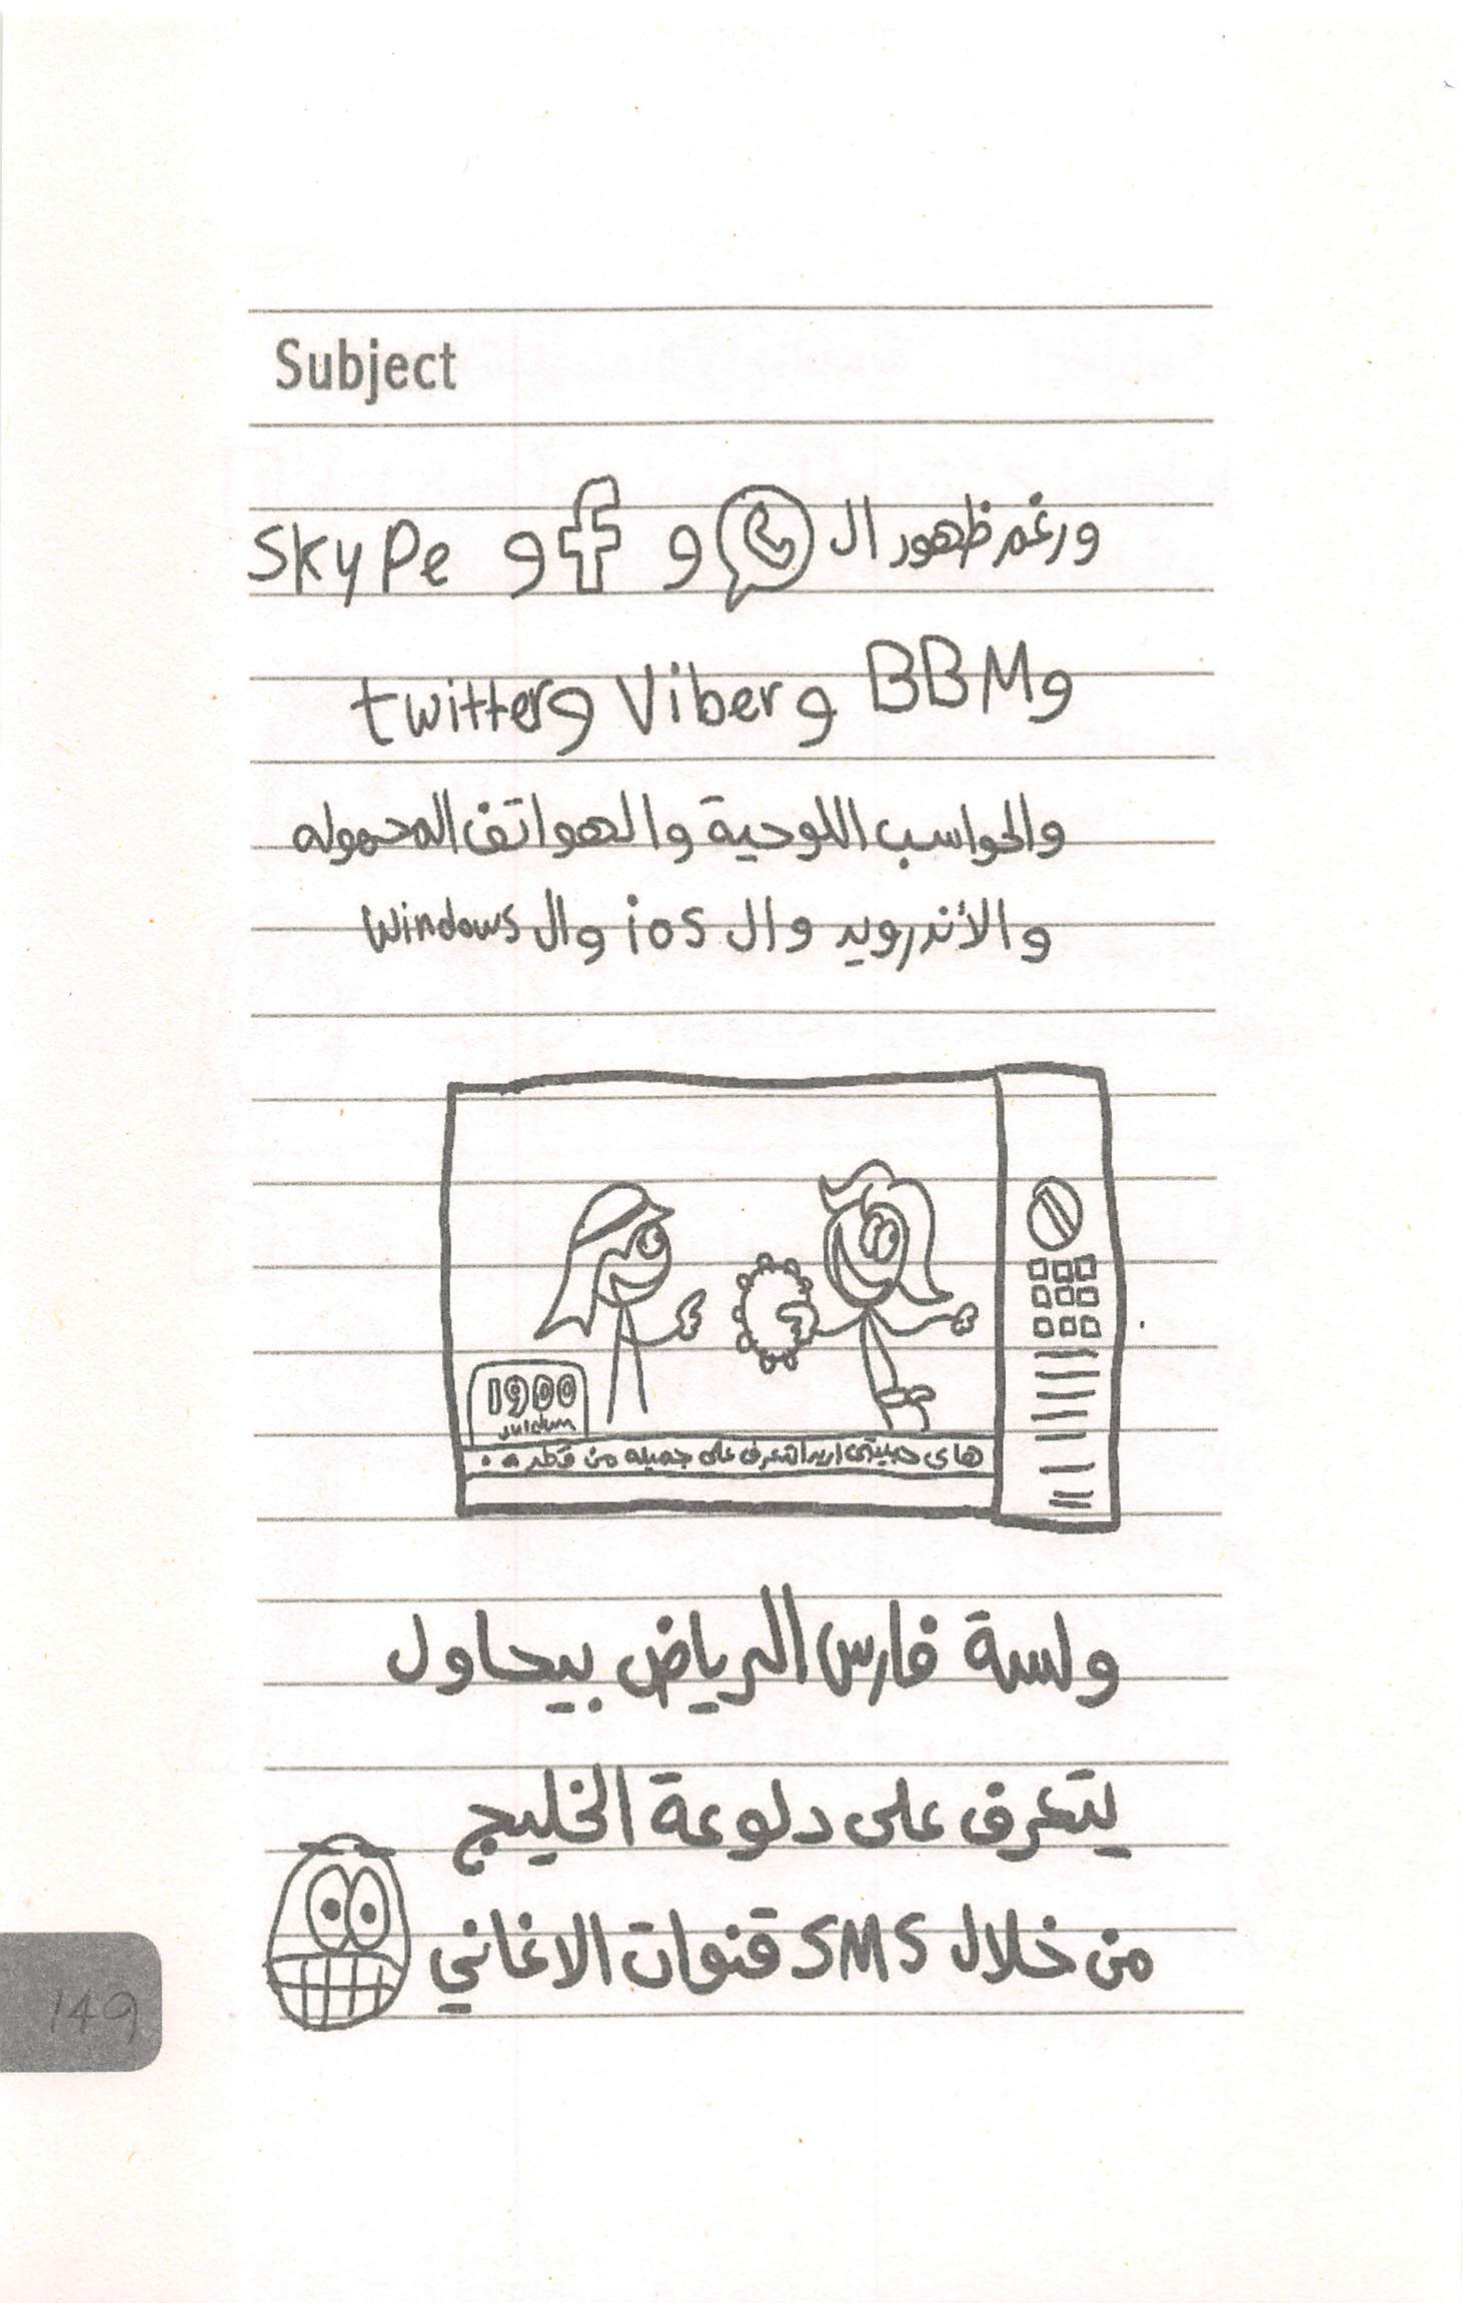 Subject
ورغم ظهور ال و f و Skype
و BBM و Viber و twitter
والحواسب اللوحية والهواتف المحموله
والأندرويد وال ios وال Windows
1900
هاي حبيبتي اريد اتعرف على جميله من قطر ..
ولسة فارس الرياض بيحاول
يتعرف على دلوعة الخليج
من خلال SMS قنوات الاغاني
149